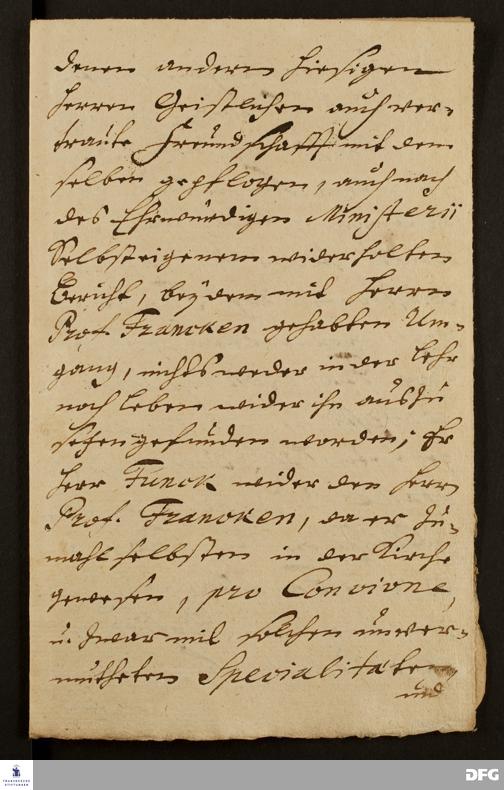 denen andern hiesigen
Herren Geistlichen auch ver-
traute Freundschafft mit dem
selben gepflogen, auch nach
des Ehrwürdigen Ministerii
Selbsteigenem widerholten
Bericht, beÿ dem mit Herrn
Prof. Francken gehabten Um-
gang, nichts weder in der Lehr
noch Leben wider ihn auszu
setzen gefunden worden; Er
Herr Funck wider den Herrn
Prof. Francken, da er zu-
mahl selbsten in der Kirche
gewesen, pro Concione,
u. zwar mit solchen unver-
mutheten Specialitaten,
und
FRANCKESCHE STIFTUNGEN
DFG